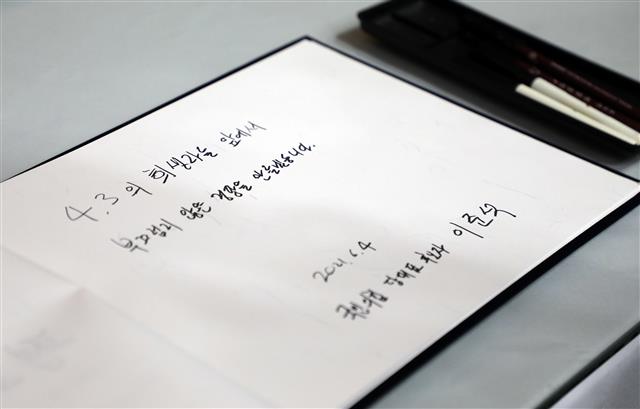 4.3의 희생자들 앞에서
부끄럽지 않은 정당을 만들겠습니다.
2021.6.4
국민의힘 당대표 후보 이준석